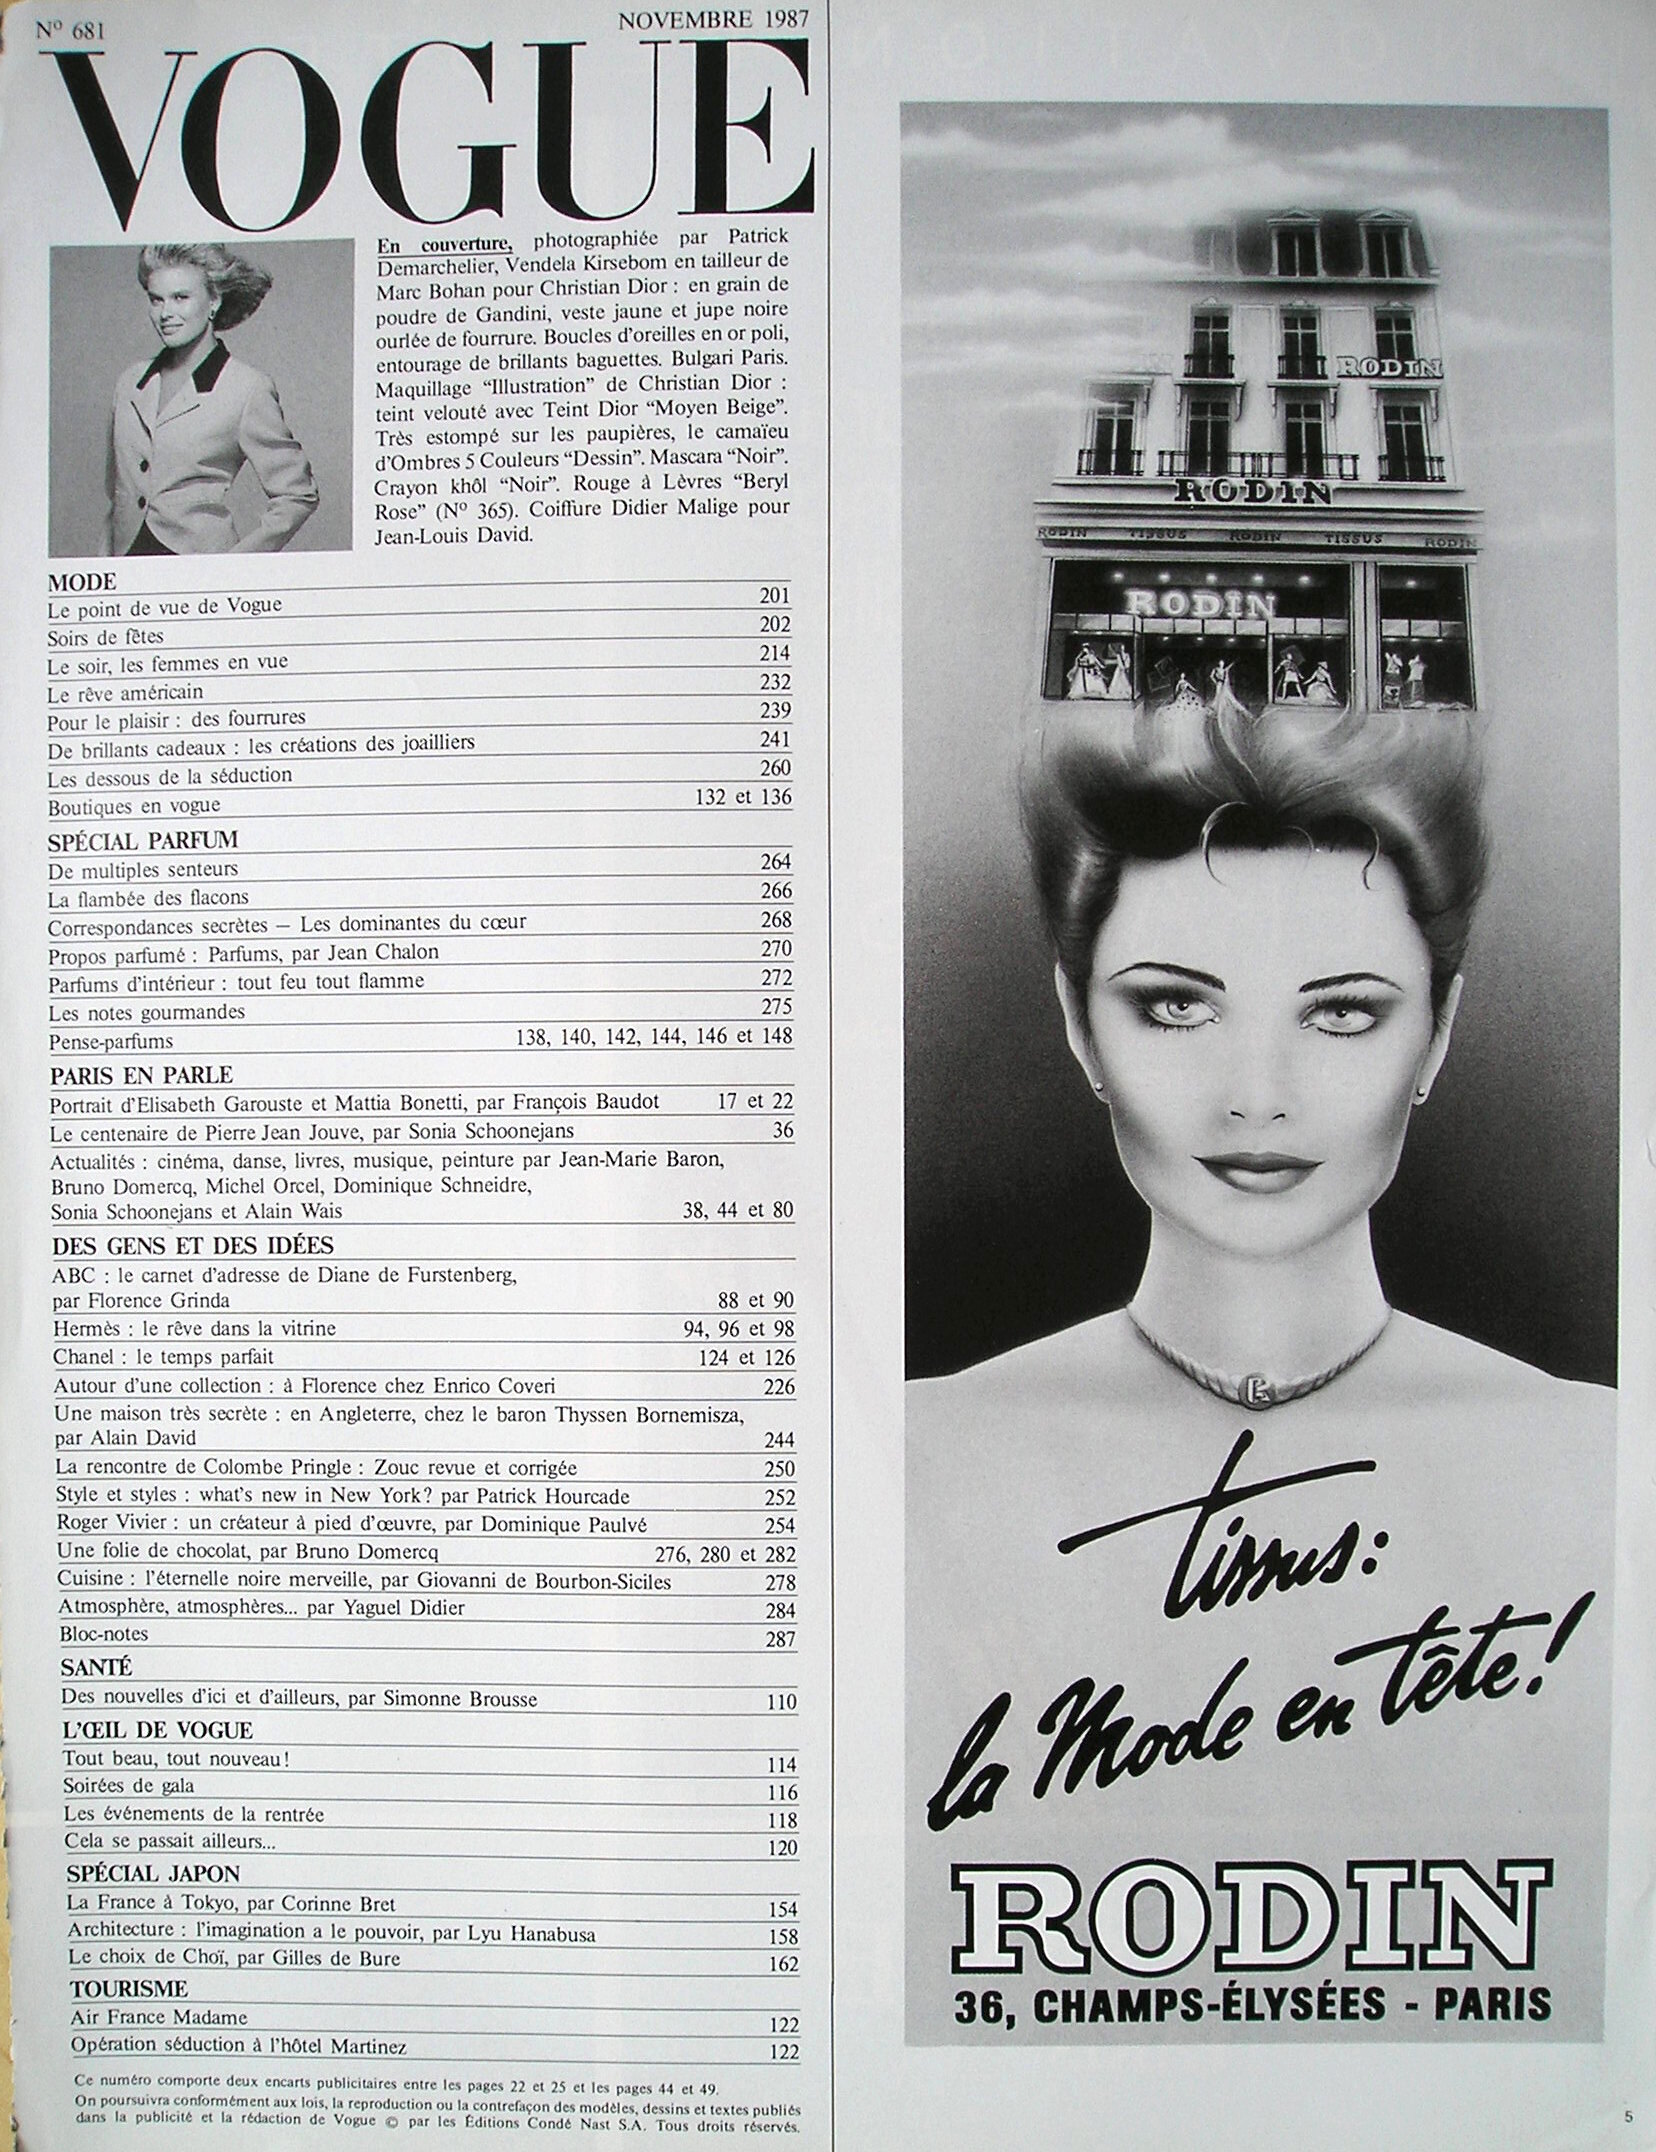 Nº 681
NOVEMBRE 1987
VOGUE
En couverture, photographiée par Patrick
Demarchelier, Vendela Kirsebom en tailleur de
Marc Bohan pour Christian Dior : en grain de
poudre de Gandini, veste jaune et jupe noire
ourlée de fourrure. Boucles d'oreilles en or poli,
entourage de brillants baguettes. Bulgari Paris.
Maquillage “Illustration” de Christian Dior :
teint velouté avec Teint Dior “Moyen Beige”.
Très estompé sur les paupières, le camaïeu
d'Ombres 5 Couleurs “Dessin”. Mascara “Noir”.
Crayon khôl “Noir”. Rouge à Lèvres “Beryl
Rose” (Nº 365). Coiffure Didier Malige pour
Jean-Louis David.
MODE
Le point de vue de Vogue 201
Soirs de fêtes 202
Le soir, les femmes en vue 214
Le rêve américain 232
Pour le plaisir : des fourrures 239
De brillants cadeaux : les créations des joailliers 241
Les dessous de la séduction 260
Boutiques en vogue 132 et 136
SPÉCIAL PARFUM
De multiples senteurs 264
La flambée des flacons 266
Correspondances secrètes – Les dominantes du cœur 268
Propos parfumé : Parfums, par Jean Chalon 270
Parfums d'intérieur : tout feu tout flamme 272
Les notes gourmandes 275
Pense-parfums 138, 140, 142, 144, 146 et 148
PARIS EN PARLE
Portrait d'Elisabeth Garouste et Mattia Bonetti, par François Baudot 17 et 22
Le centenaire de Pierre Jean Jouve, par Sonia Schoonejans 36
Actualités : cinéma, danse, livres, musique, peinture par Jean-Marie Baron,
Bruno Domercq, Michel Orcel, Dominique Schneidre,
Sonia Schoonejans et Alain Wais 38, 44 et 80
DES GENS ET DES IDÉES
ABC : le carnet d'adresse de Diane de Furstenberg,
par Florence Grinda 88 et 90
Hermès : le rêve dans la vitrine 94, 96 et 98
Chanel : le temps parfait 124 et 126
Autour d'une collection : à Florence chez Enrico Coveri 226
Une maison très secrète : en Angleterre, chez le baron Thyssen Bornemisza,
par Alain David 244
La rencontre de Colombe Pringle : Zouc revue et corrigée 250
Style et styles : what's new in New York? par Patrick Hourcade 252
Roger Vivier : un créateur à pied d'œuvre, par Dominique Paulvé 254
Une folie de chocolat, par Bruno Domercq 276, 280 et 282
Cuisine : l'éternelle noire merveille, par Giovanni de Bourbon-Siciles 278
Atmosphère, atmosphères... par Yaguel Didier 284
Bloc-notes 287
SANTÉ
Des nouvelles d'ici et d'ailleurs, par Simonne Brousse 110
L'ŒIL DE VOGUE
Tout beau, tout nouveau! 114
Soirées de gala 116
Les événements de la rentrée 118
Cela se passait ailleurs... 120
SPÉCIAL JAPON
La France à Tokyo, par Corinne Bret 154
Architecture : l'imagination a le pouvoir, par Lyu Hanabusa 158
Le choix de Choï, par Gilles de Bure 162
TOURISME
Air France Madame 122
Opération séduction à l'hôtel Martinez 122
Ce numéro comporte deux encarts publicitaires entre les pages 22 et 25 et les pages 44 et 49.
On poursuivra conformément aux lois, la reproduction ou la contrefaçon des modèles, dessins et textes publiés
dans la publicité et la rédaction de Vogue © par les Éditions Condé Nast S.A. Tous droits réservés.
RODIN
RODIN
RODIN TISSUS RODIN TISSUS RODIN
RODIN
tissus:
la Mode en tête!
RODIN
36, CHAMPS-ÉLYSÉES - PARIS
5